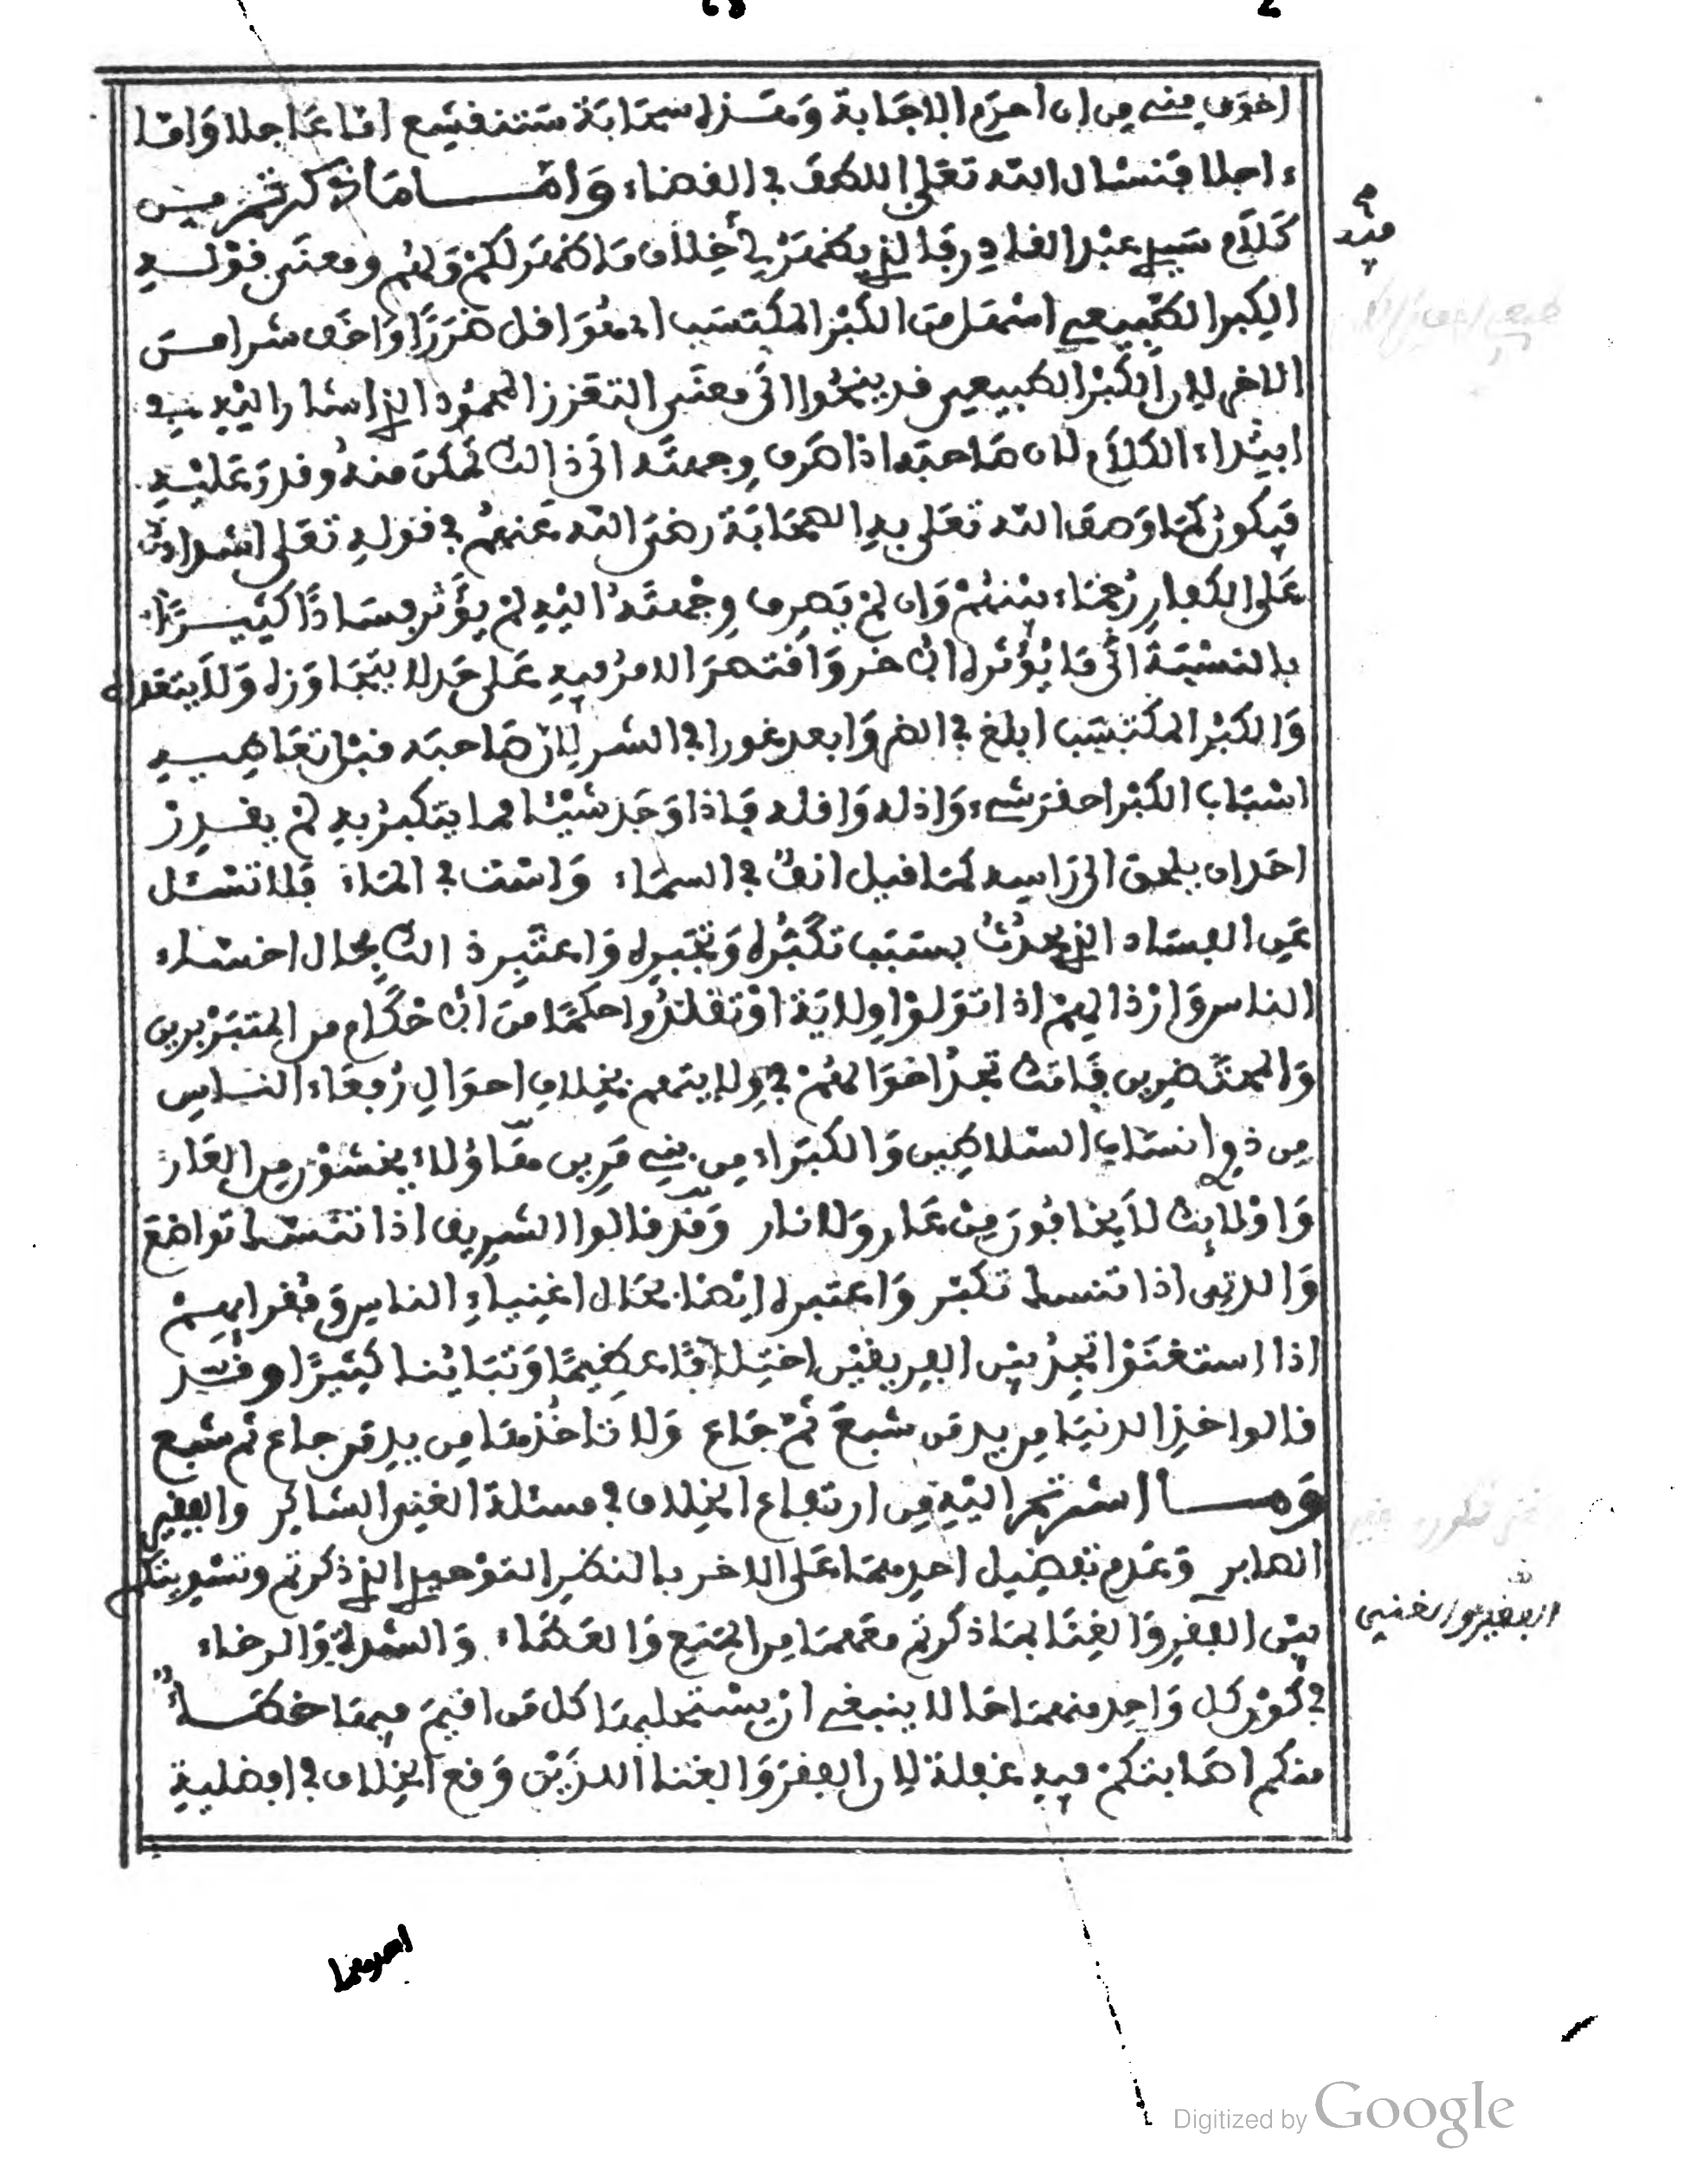 اخوف منى من ان احرم الاجابة وهذه سحابة ستنقشع اما عاجلا واما
ءاجلا فنسال الله تعلى اللطف في القضاء واما ما ذكرتم من
كلام سيدي عبد القادر فالذي يظهر لي خلاف ما ظهر لكم ولهم ومعنى قوله
الكبر الطبيعي اسهل من الكبر المكتسب اي هو اقل ضررا واخف شرا من
الاخر لان الكبر الطبيعي قد ينحوا الى معنى التعزز المحمود الذي اشار اليه في
ابتداء الكلام لان صاحبه اذا صرف وجهته الى ذالك تمكن منه وقدر عليه
فيكون كما وصف الله تعلى به الصحابة رضي الله عنهم في قوله تعلى اشداء
على الكفار رحماء بينهم وان لم يصرف وجهته اليه لم يؤثر فسادا كثيرا
بالنسبة الى ما يؤثره الاخر واقتصر الامر فيه على حد لا يتجاوزه ولا يتعداه
والكبر المكتسب ابلغ في الضر وابعد غورا في الشر لان صاحبه قبل تعاطيه
اسباب الكبر احقر شيء واذله واقله فاذا وجد شيئا مما يتكبر به لم يقدر
احد ان يلحق الى راسه كما قيل انف في السماء واست في الماء فلا تسئل
عن الفساد الذي يحدث بسبب تكبره وتجبره واعتبر ذالك بحال اخساء
الناس وارذالهم اذا تولوا ولاية او تقلدوا حكما من الاحكام من المتبربرين
والمتحضرين فانك تجد احوالهم في ولايتهم بخلاف احوال رفعاء الناس
من ذوي انساب السلاطين والكبراء من بني مرين هاؤلاء يخشون من العار
واولائك لا يخافون من عار ولا نار وقد قالوا الشريف اذا تنسك تواضع
والدني اذا تنسك تكبر واعتبره ايضا بحال اغنياء الناس وفقرائهم
اذا استغنوا تجد بين الفريقين اختلافا عظيما وتباينا كثيرا وقد
قالوا خذ الدنيا من يد من شبع ثم جاع ولا تاخذها من يد من جاع ثم شبع
وما اشرتم اليه من ارتفاع الخلاف في مسئلة الغني الشاكر والفقير
الصابر وعدم تفضيل احدهما على الاخر بالنظر التوحيدي الذي ذكرتم وتسويتكم
بين الفقر والغنا بما ذكرتم معهما من المنع والعطاء والشدة والرخاء
في كون كل واحد منهما حالا ينبغي ان يستحليها كل من اقيم فيها خطأ
منكم اصابتكم فيه غفلة لان الفقر والغنا الذين وقع الخلاف في افضلية
منه
الفقير والغني
احدهما
Digitized by Google